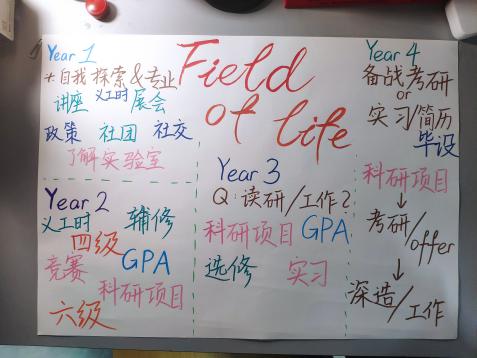 Field
of life
Year 1
*自我探索&专业
讲座 义工时 展会
政策 社团 社交
了解实验室
Year 2
义工时 辅修
四级
竞赛 GPA
科研项目
六级
Year 3
Q:读研/工作?
科研项目 GPA
选修 实习
Year 4
备战考研
or
实习/简历
毕设
科研项目
↓
考研/offer
↓
深造/工作